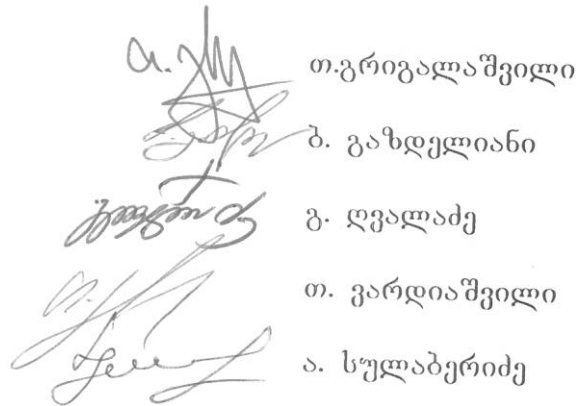 თ.გრიგალაშვილი
ბ. გაზდელიანი
გ. ღვალაძე
თ. ვარდიაშვილი
ა. სულაბერიძე